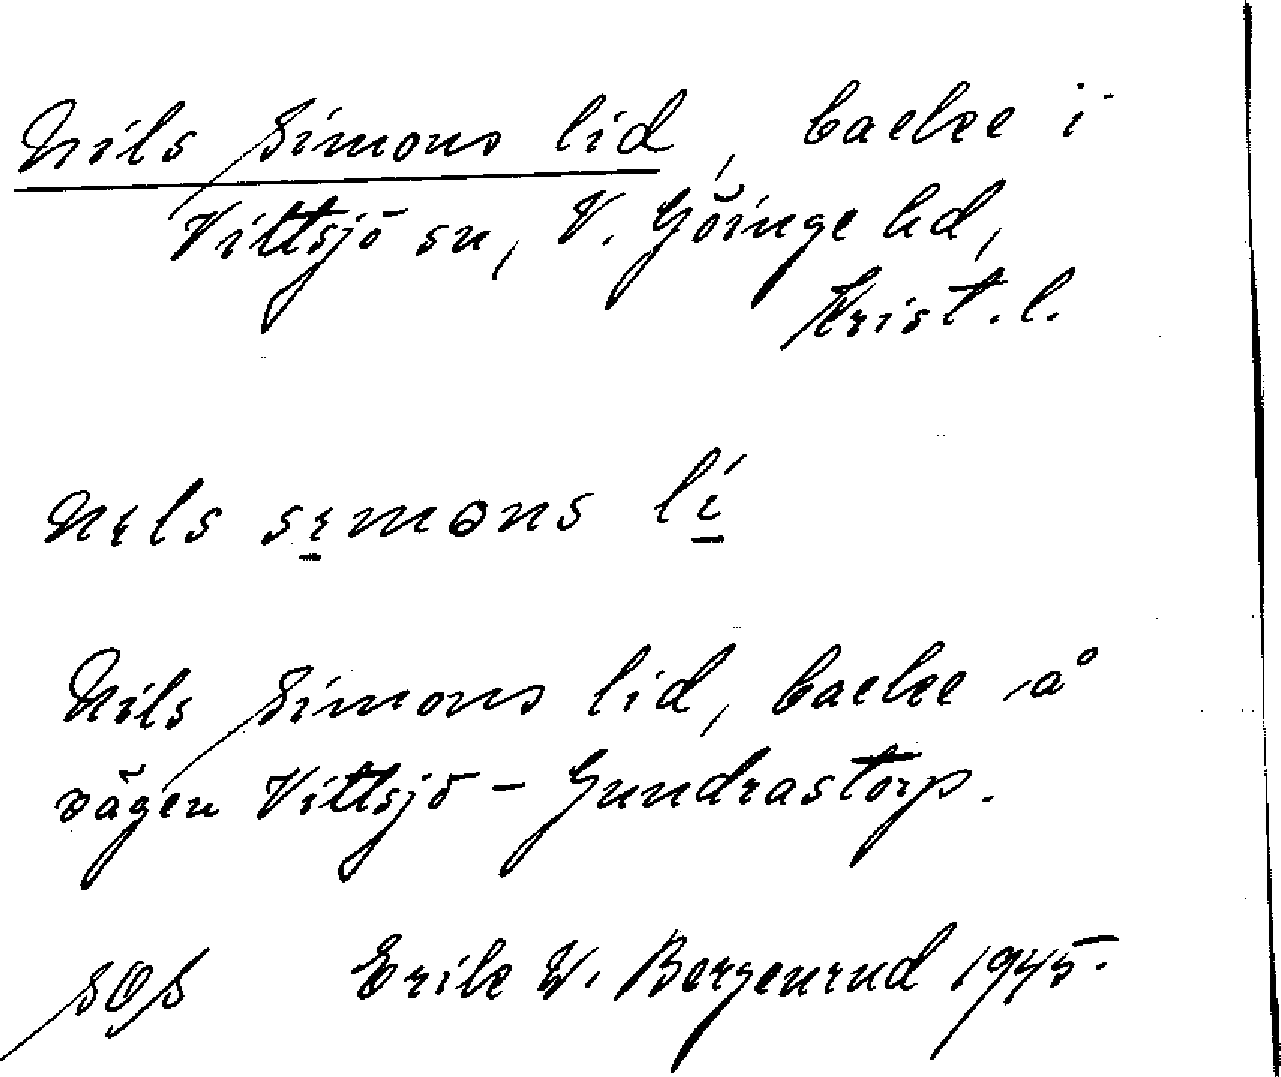 Nils Simons lid, backe i
Vittsjö sn, V. Göinge hd,
Krist. l.
Nɩls sɩmɵns lí
Nils Simons lid, backe å
vägen Vittsjö - Gundrastorp.
SOS Erik W. Bergenrud 1945.